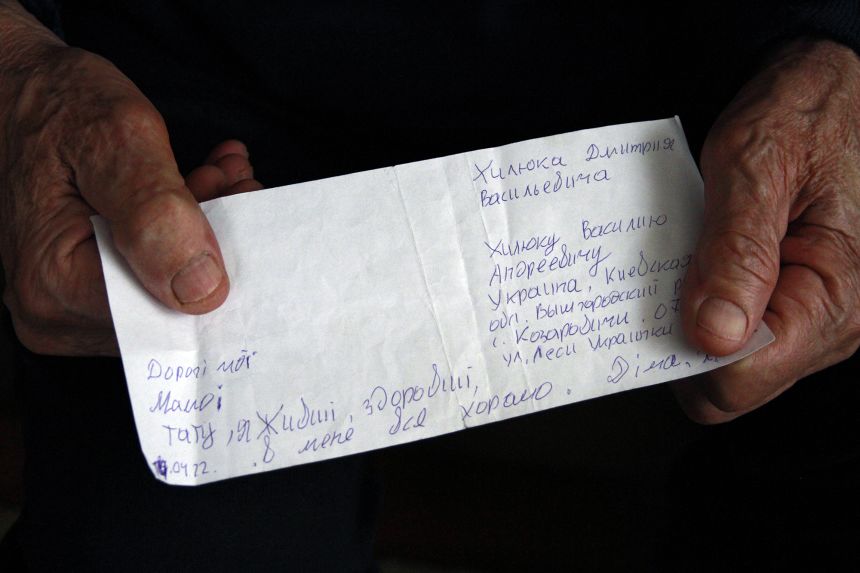 Хилюка Дмитрия
Васильевича
Хилюку Василию
Андреевичу
Украина, Киевская
обл. Вышгородский р
с. Козаровичи. 07
ул. Леси Украинки
Дорогі мої
Мамо і
тату, я живий, здоровий,
.04.22. в мене все хорошо. Діма,